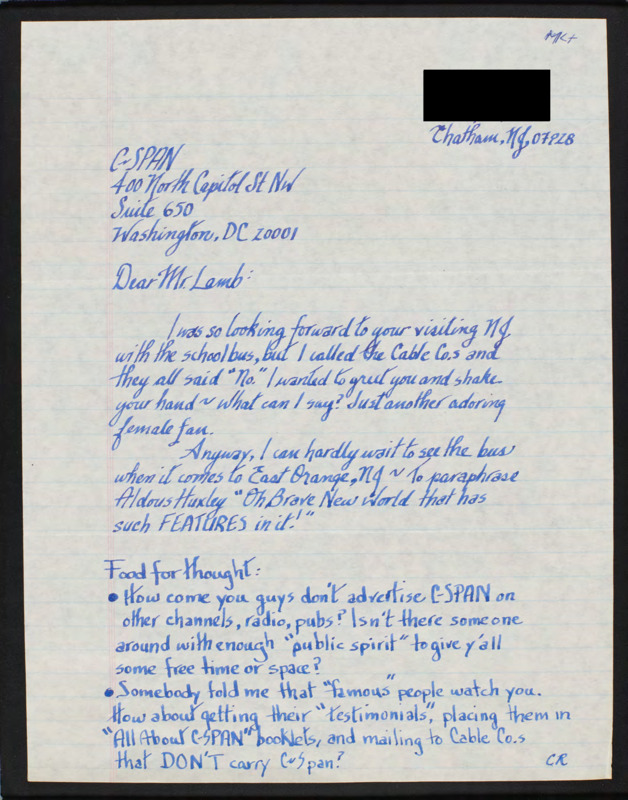 MK+
Chatham, NJ, 07928
C-SPAN
400 North Capitol St NW
Suite 650
Washington, DC 20001
Dear Mr. Lamb:
I was so looking forward to your visiting NJ
with the school bus, but I called the Cable Co.s and
they all said "No." I wanted to greet you and shake
your hand ~ what can I say? Just another adoring
female fan.
Anyway, I can hardly wait to see the bus
when it comes to East Orange, NJ ~ To paraphrase
Aldous Huxley "Oh Brave New World that has
such FEATURES in it!"
Food for thought:
• How come you guys don't advertise C-SPAN on
other channels, radio, pubs? Isn't there someone
around with enough "public spirit" to give y'all
some free time or space?
• Somebody told me that "famous" people watch you.
How about getting their "testimonials", placing them in
"All About C-SPAN" booklets, and mailing to Cable Co.s
that DON'T carry C-Span?
CR